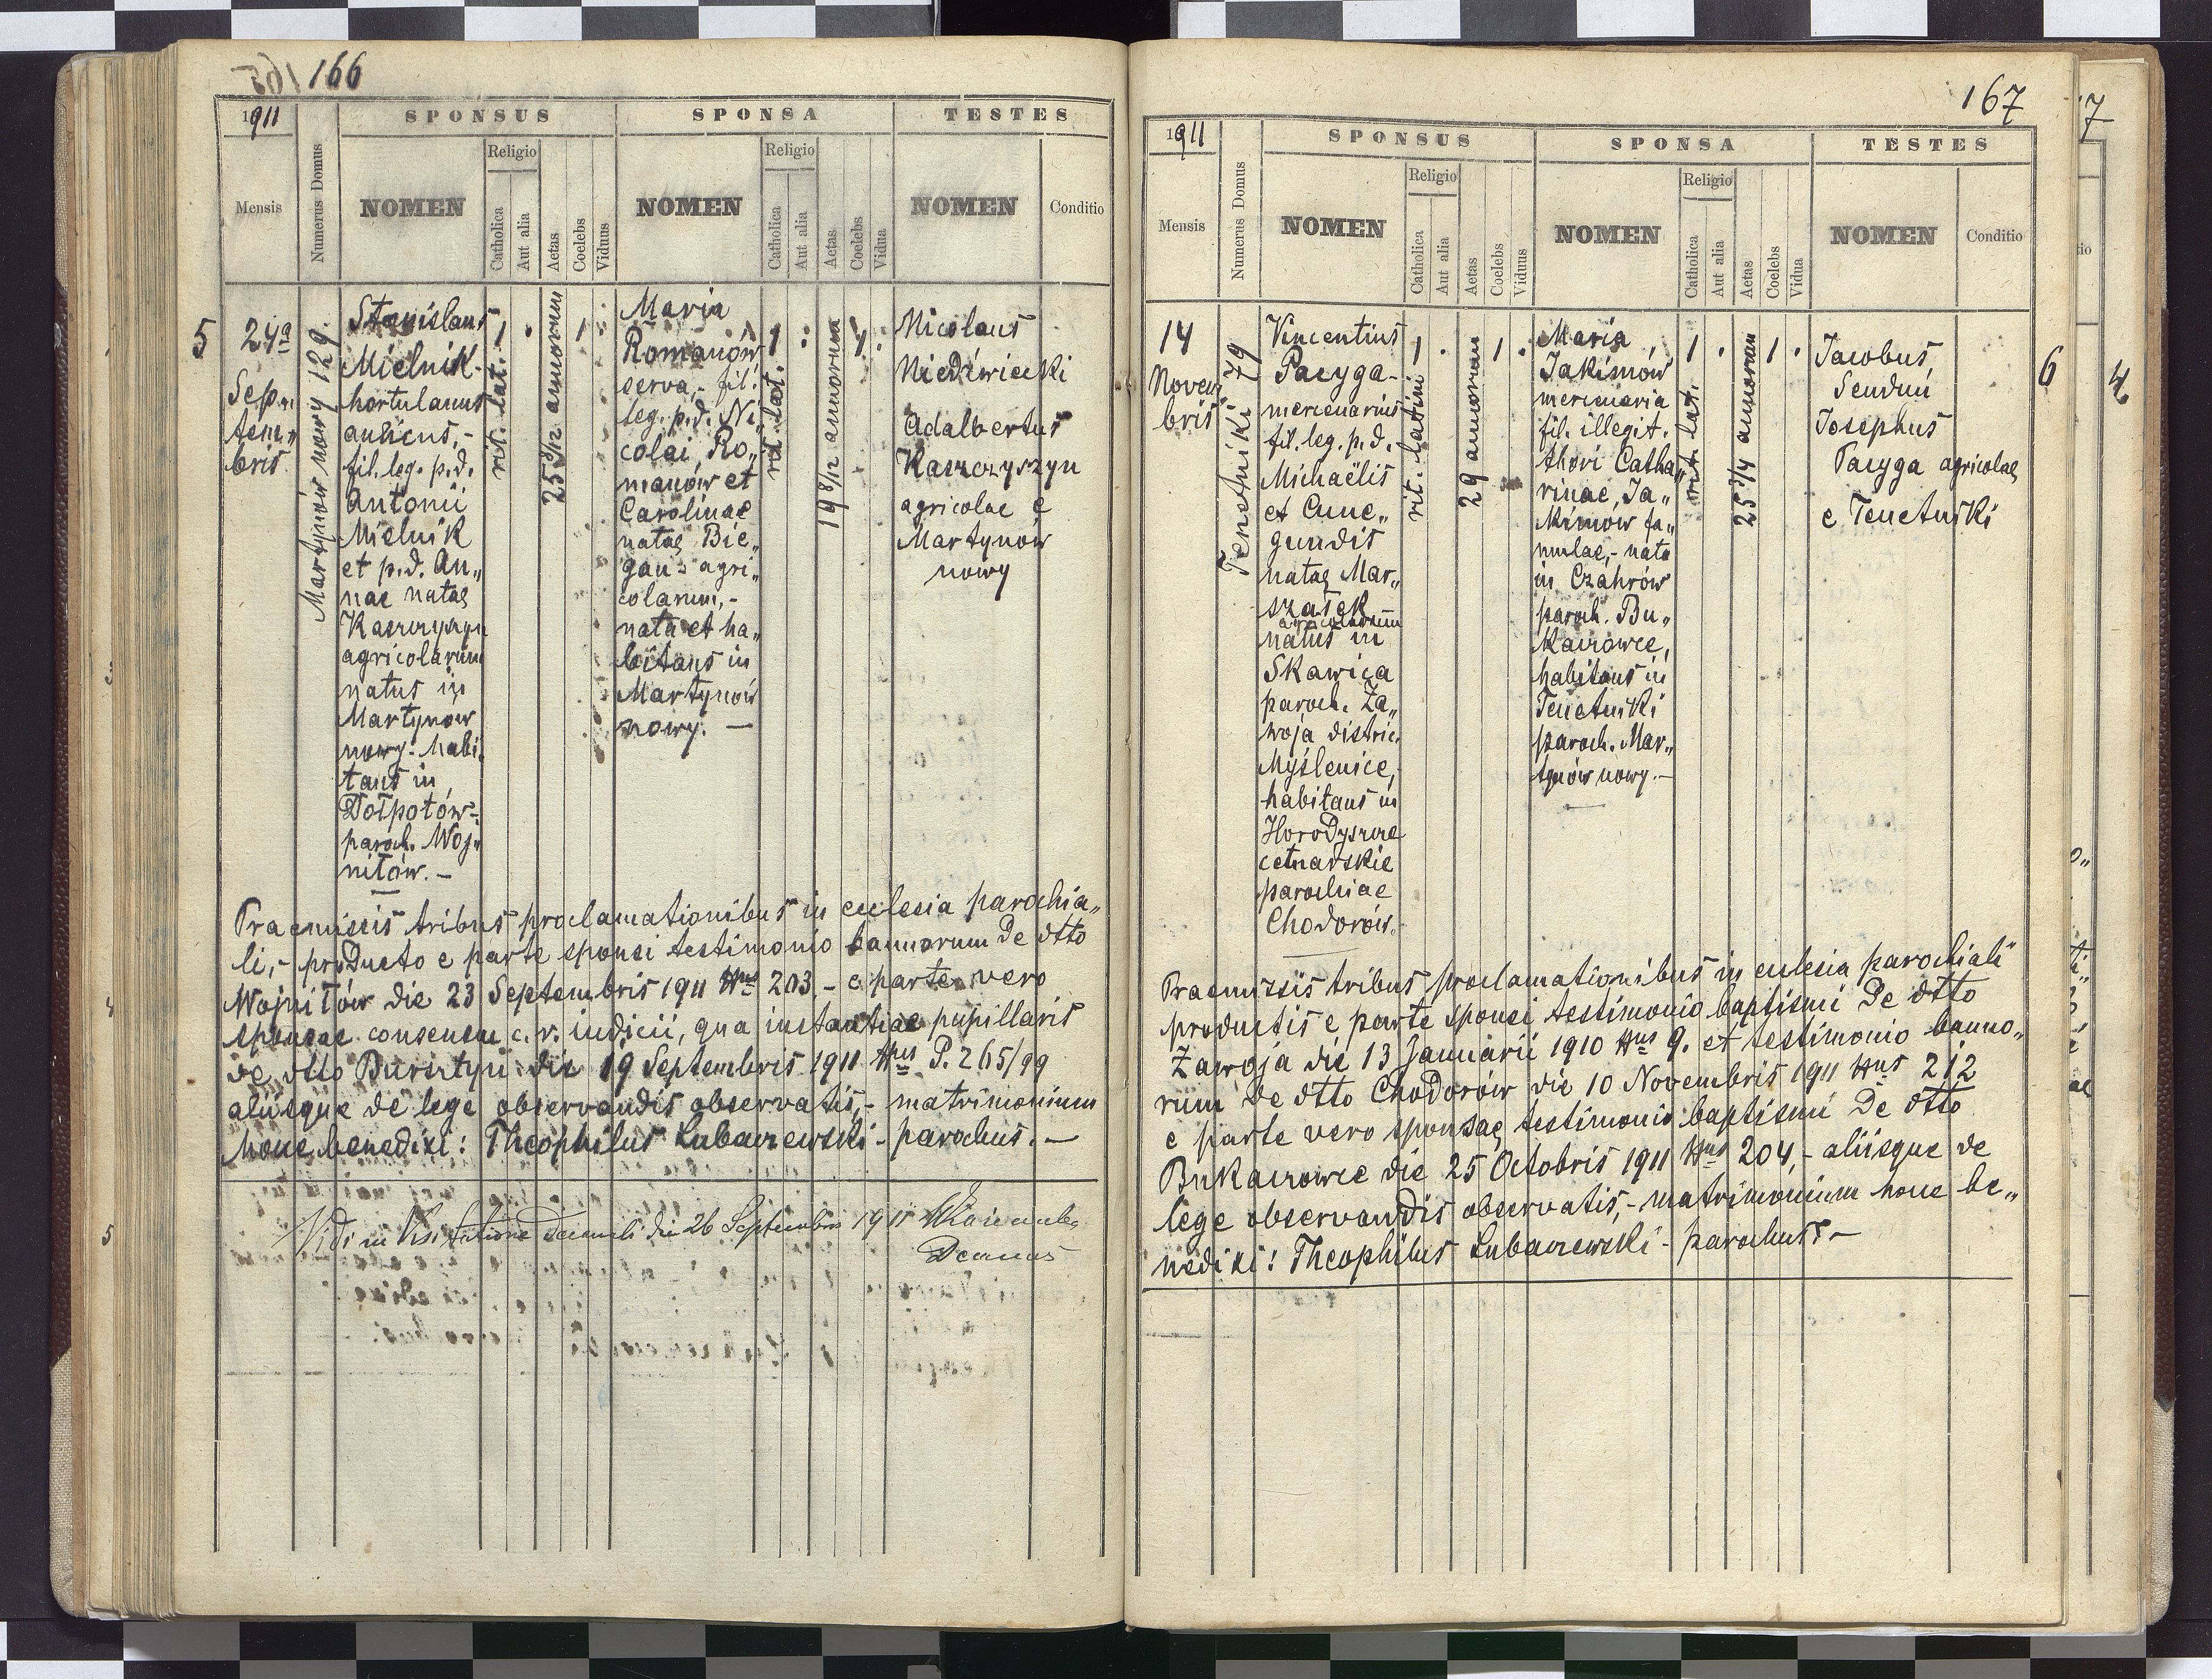 166
1911
SPONSUS
SPONSA
TESTES
Mensis
Numerus Domus
NOMEN
Religio
Catholica
Aut alia
Aetas
Coelebs
Viduus
NOMEN
Religio
Catholica
Aut alia
Aetas
Coelebs
Vidua
NOMEN
Conditio
5
24ta
Sep„
tem„
bris
Martynów nowy 129.
Stanislaus
Mielnik-
hortulanus
aulicus,-
fil. leg. p.d.
Antonii
Mielnik
et p.d. An„
nae natae
Kaszczyszyn
agricolarum
natus in
Martynow
nowy. habi„
tans in
Dołpotów-
paroch. Woj„
niłów.-
1
rit. lat.
25 3/12 annorum
1
Maria
Romanów
serva,- fil.
leg. p.d. Ni„
colai Ro„
manów et
Carolinae
natae Bie„
gan- agri„
colarum,-
nata et ha„
bitans in
Martynów
nowy. —
1
rit. lat.
19 8/12 annorum
1
Nicolaus
Niedźwiecki
Adalbertus
Kaszczyszyn
agricolae e
Martynów
nowy
Praemissis tribus proclamationibus in ecclesia parochia„
li,- producto e parte sponsi testimonio bannorum de dtto
Wojniłów die 23 Septembris 1911 Nus 203,- e parte vero
sponsae consensu c. r. iudicii, qua instantiae pupillaris
de dtto Bursztyn die 19 Septembris 1911 Nus P. 265/99
aliisque de lege observandis observatis,- matrimonium
hocce benedixi: Theophilus Łubaczewski - parochus.—
Vidi in Visitatione Decanali die 26 Septembris 1911
Decanus
167
1911
SPONSUS
SPONSA
TESTES
Mensis
Numerus Domus
NOMEN
Religio
Catholica
Aut alia
Aetas
Coelebs
Viduus
NOMEN
Religio
Catholica
Aut alia
Aetas
Coelebs
Vidua
NOMEN
Conditio
14
Novem„
bris
Tenetniki 79
Vincentius
Pacyga-
mercenarius
fil. leg. p.d.
Michaëlis
et Cune„
gundis
natae Mar„
szałek
agricolarum
natus in
Skawica
paroch. Za„
woja distric.
Myślenice,
habitans in
Horodyszcze
cetnarskie
parochiae
Chodorów.
1
rit. latini
29 annorum
1
Maria
Jakimów
mercenaria
fil. illegit.
thori Catha„
rinae Ja„
kimów fa„
mulae,- nata
in Czahrów
paroch. Bu„
kaczowce,
habitans in
Tenetniki
paroch. Mar„
tynów nowy.-
1
rit. lat.
25 3/4 annorum
1
Jacobus
Senduń
Josephus
Pacyga agricolae
e Tenetniki
6
Praemissis tribus proclamationibus in eclesia parochiali
productis e parte sponsi testimonio baptismi de dtto
Zawoja die 13 Januarii 1910 Nus 9. et testimonio banno„
rum de dtto Chodorów die 10 Novembris 1911 Nus 212
e parte vero sponsae testimonio baptismi de dtto
Bukaczowce die 25 Octobris 1911 Nus 204,- aliisque de
lege observandis observatis,- matrimonium hocce be„
nedixi: Theophilus Łubaczewski - parochus.-